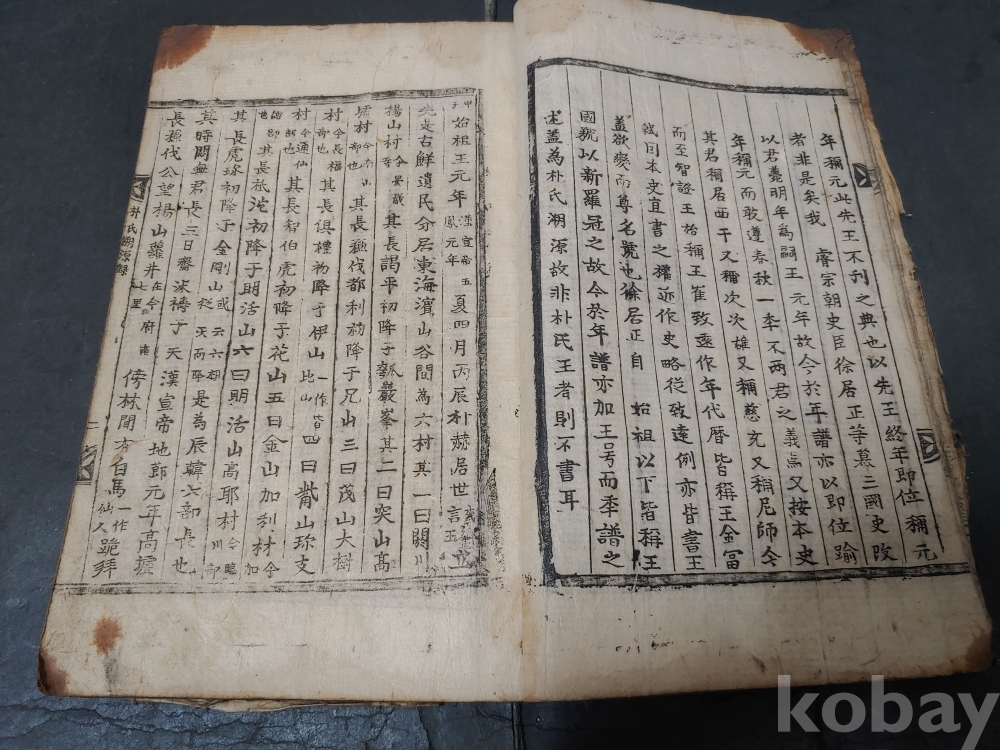 年稱元此先王不刊之典也以先王終年即位稱元
者非是矣我 睿宗朝史臣徐居正等慕三國史改
以君薨明年為嗣王 元年故今於年譜亦以即位踰
年稱元而敢遵春秋一季不兩君之義焉又按本史
其君稱居西干又稱次次雄又稱慈充又稱尼師今
而至智證王始稱王崔致遠作年代曆皆稱王金富
軾曰本史宜書之權近作史略從致遠例亦皆書王
盖欲變而尊名號也徐居正自 始祖以下皆稱王
國號以新羅冠之故今於年譜亦加王号而季譜之
述盖為朴氏溯源故非朴氏王者則不書耳
甲子始祖王元年漢宣帝五鳳元年夏四月丙辰朴赫居世言王立
先是古鮮遺民分居東海濱山谷間為六村其一曰閼川
楊山村今曇嚴寺其長謁平初降于瓢巖峯其二曰突山高
墟村其長蘇伐都利初降于兄山三曰茂山大樹
村其長俱禮初降于伊山一作皆比山四曰觜山珍支
村其長智伯虎初降于花山五曰金山加利村今加
其長祇沱初降于明活山六曰明活山高耶村今臨川部
其長虎珍初降于金剛山或云六村從天而降是為辰韓六部長也
其時閼無君長三日齋沐禱于天漢宣帝地節元年高墟
長蘇伐公望楊山蘿井在今府南七里傍林間有白馬一作仙人跪拜
朴氏溯源錄
二
kobay